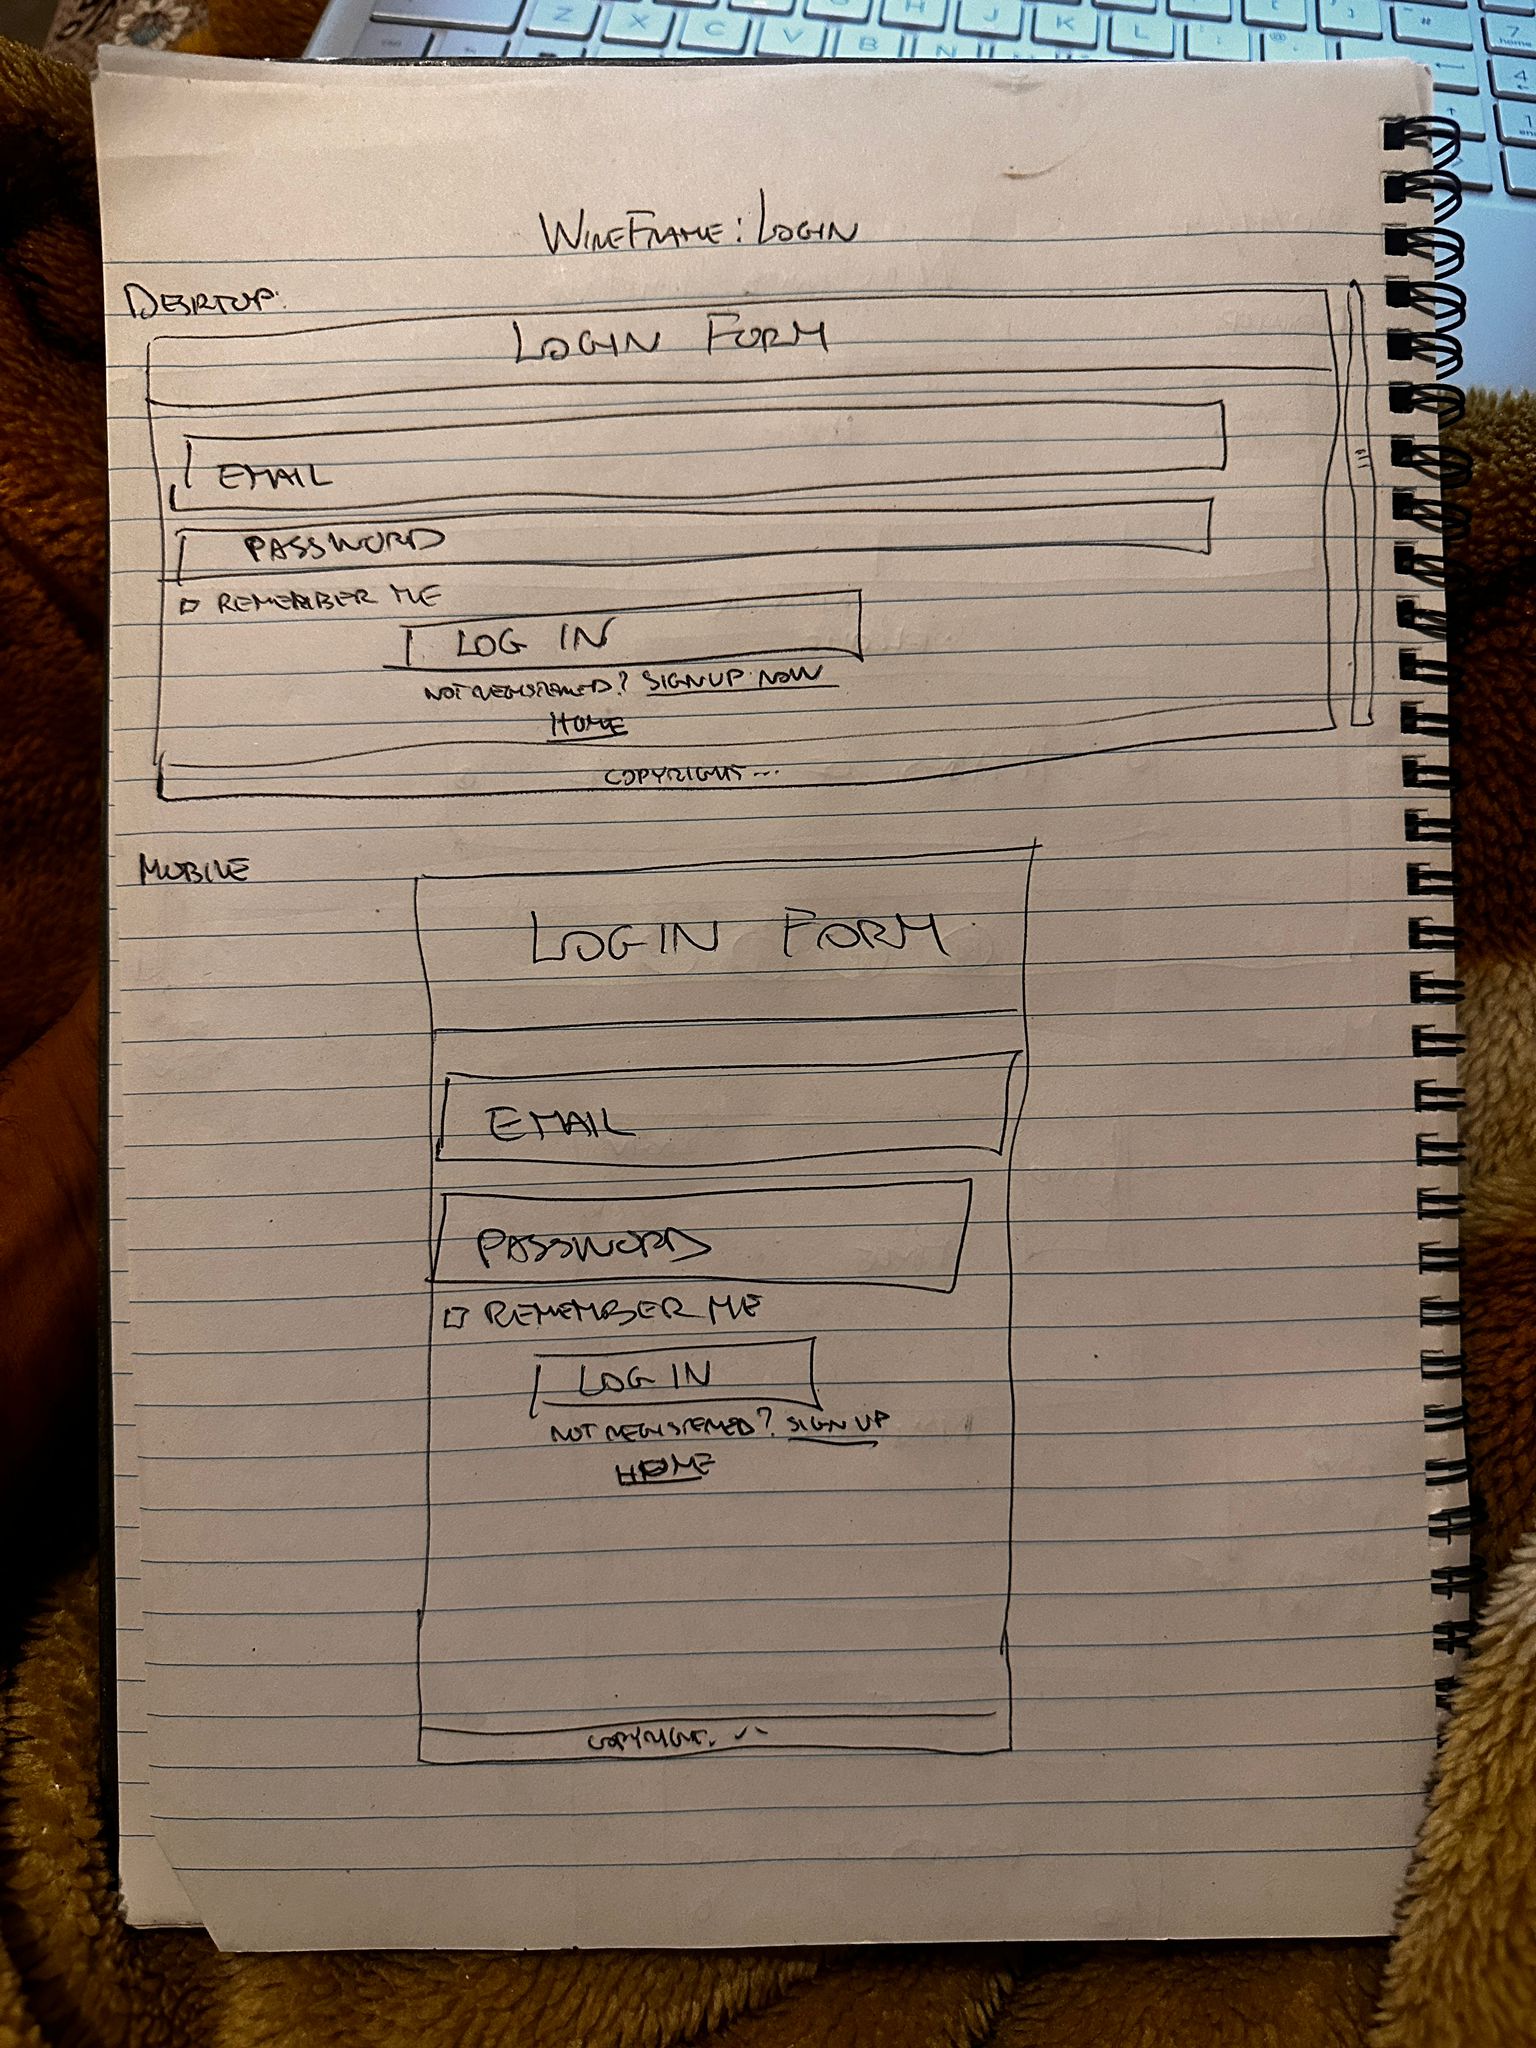 Z X C V B N
H J K L
WIREFRAME: LOGIN
DESKTOP:
LOGIN FORM
EMAIL
PASSWORD
REMEMBER ME
LOG IN
NOT REGISTERED? SIGNUP NOW
HOME
COPYRIGHT...
MOBILE
LOGIN FORM
EMAIL
PASSWORD
REMEMBER ME
LOG IN
NOT REGISTERED? SIGN UP
HOME
COPYRIGHT...